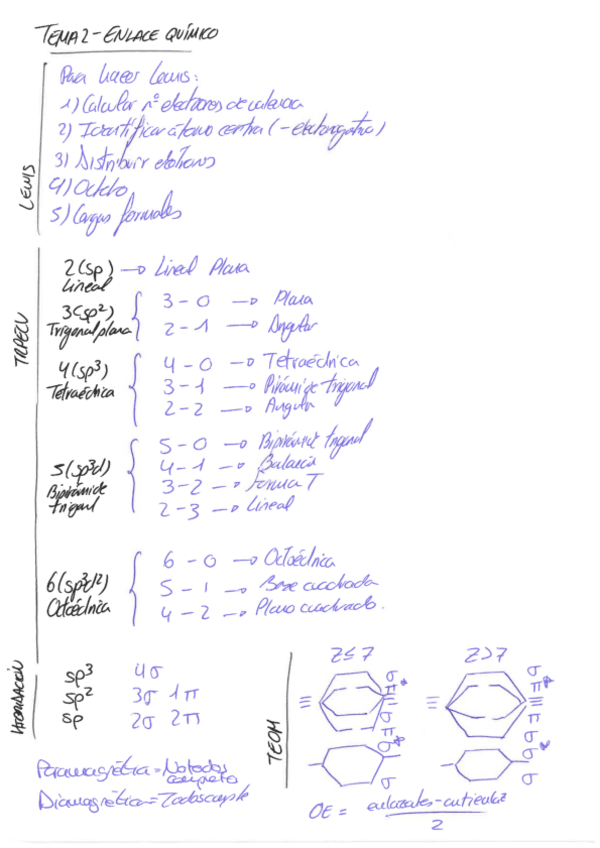 TEMA 2 - ENLACE QUÍMICO
LEWIS
Para hacer Lewis:
1) Calcular nº electrones de valencia
2) Identificar átomo central (- electronegativo)
3) Distribuir eletrones
4) Octeto
5) Cargas formales
TRPECV
2 (sp) → Lineal Plana
Lineal
3 (sp²)
Trigonal plana
3 - 0 → Plana
2 - 1 → Angular
4 (sp³)
Tetraédrica
4 - 0 → Tetraédrica
3 - 1 → Pirámide trigonal
2 - 2 → Angular
5 (sp³d)
Bipirámide
trigonal
5 - 0 → Bipirámide trigonal
4 - 1 → Balancín
3 - 2 → Forma T
2 - 3 → Lineal
6 (sp³d²)
Octaédrica
6 - 0 → Octaédrica
5 - 1 → Base cuadrada
4 - 2 → Plano cuadrado.
HIBRIDACIÓN
sp³ 4σ
sp² 3σ 1π
sp 2σ 2π
Paramagnética = No todos
completo
Diamagnética = Todos
TEOM
Z≤7
σ π* σ π σ* σ
Z>7
σ π* π σ σ* σ
OE = enlazantes - antienlaz
2